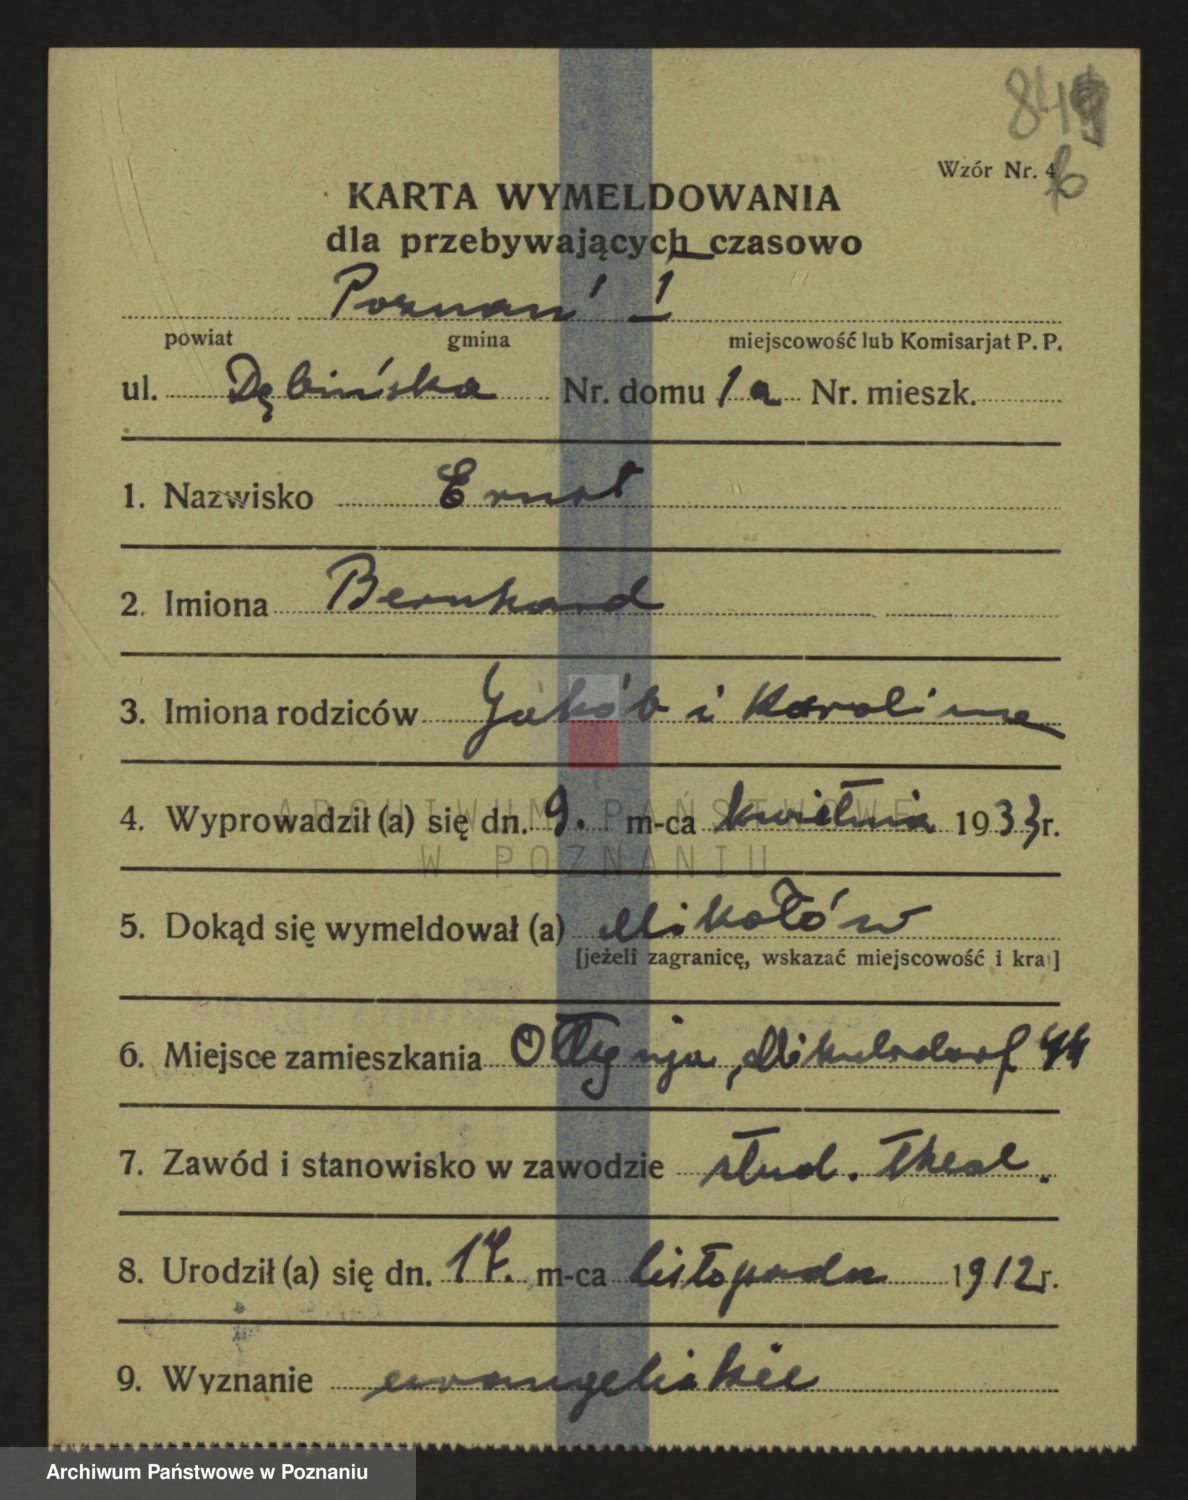 849
6
Wzór Nr. 4
KARTA WYMELDOWANIA
dla przebywających czasowo
Poznań I
powiat gmina miejscowość lub Komisarjat P. P.
ul. Dębińska Nr. domu 1a Nr. mieszk.
1. Nazwisko Ernst
2. Imiona Bernhard
3. Imiona rodziców Jakób i Karolina
4. Wyprowadził (a) się dn. 9. m-ca kwietnia 1933 r.
ARCHIWUM PAŃSTWOWE
W POZNANIU
5. Dokąd się wymeldował (a) Mikołów
[jeżeli zagranicę, wskazać miejscowość i kraj]
6. Miejsce zamieszkania Ottynja, Mikulsdorf 44
7. Zawód i stanowisko w zawodzie stud. theol.
8. Urodził (a) się dn. 17. m-ca listopada 1912 r.
9. Wyznanie ewangelickie
Archiwum Państwowe w Poznaniu